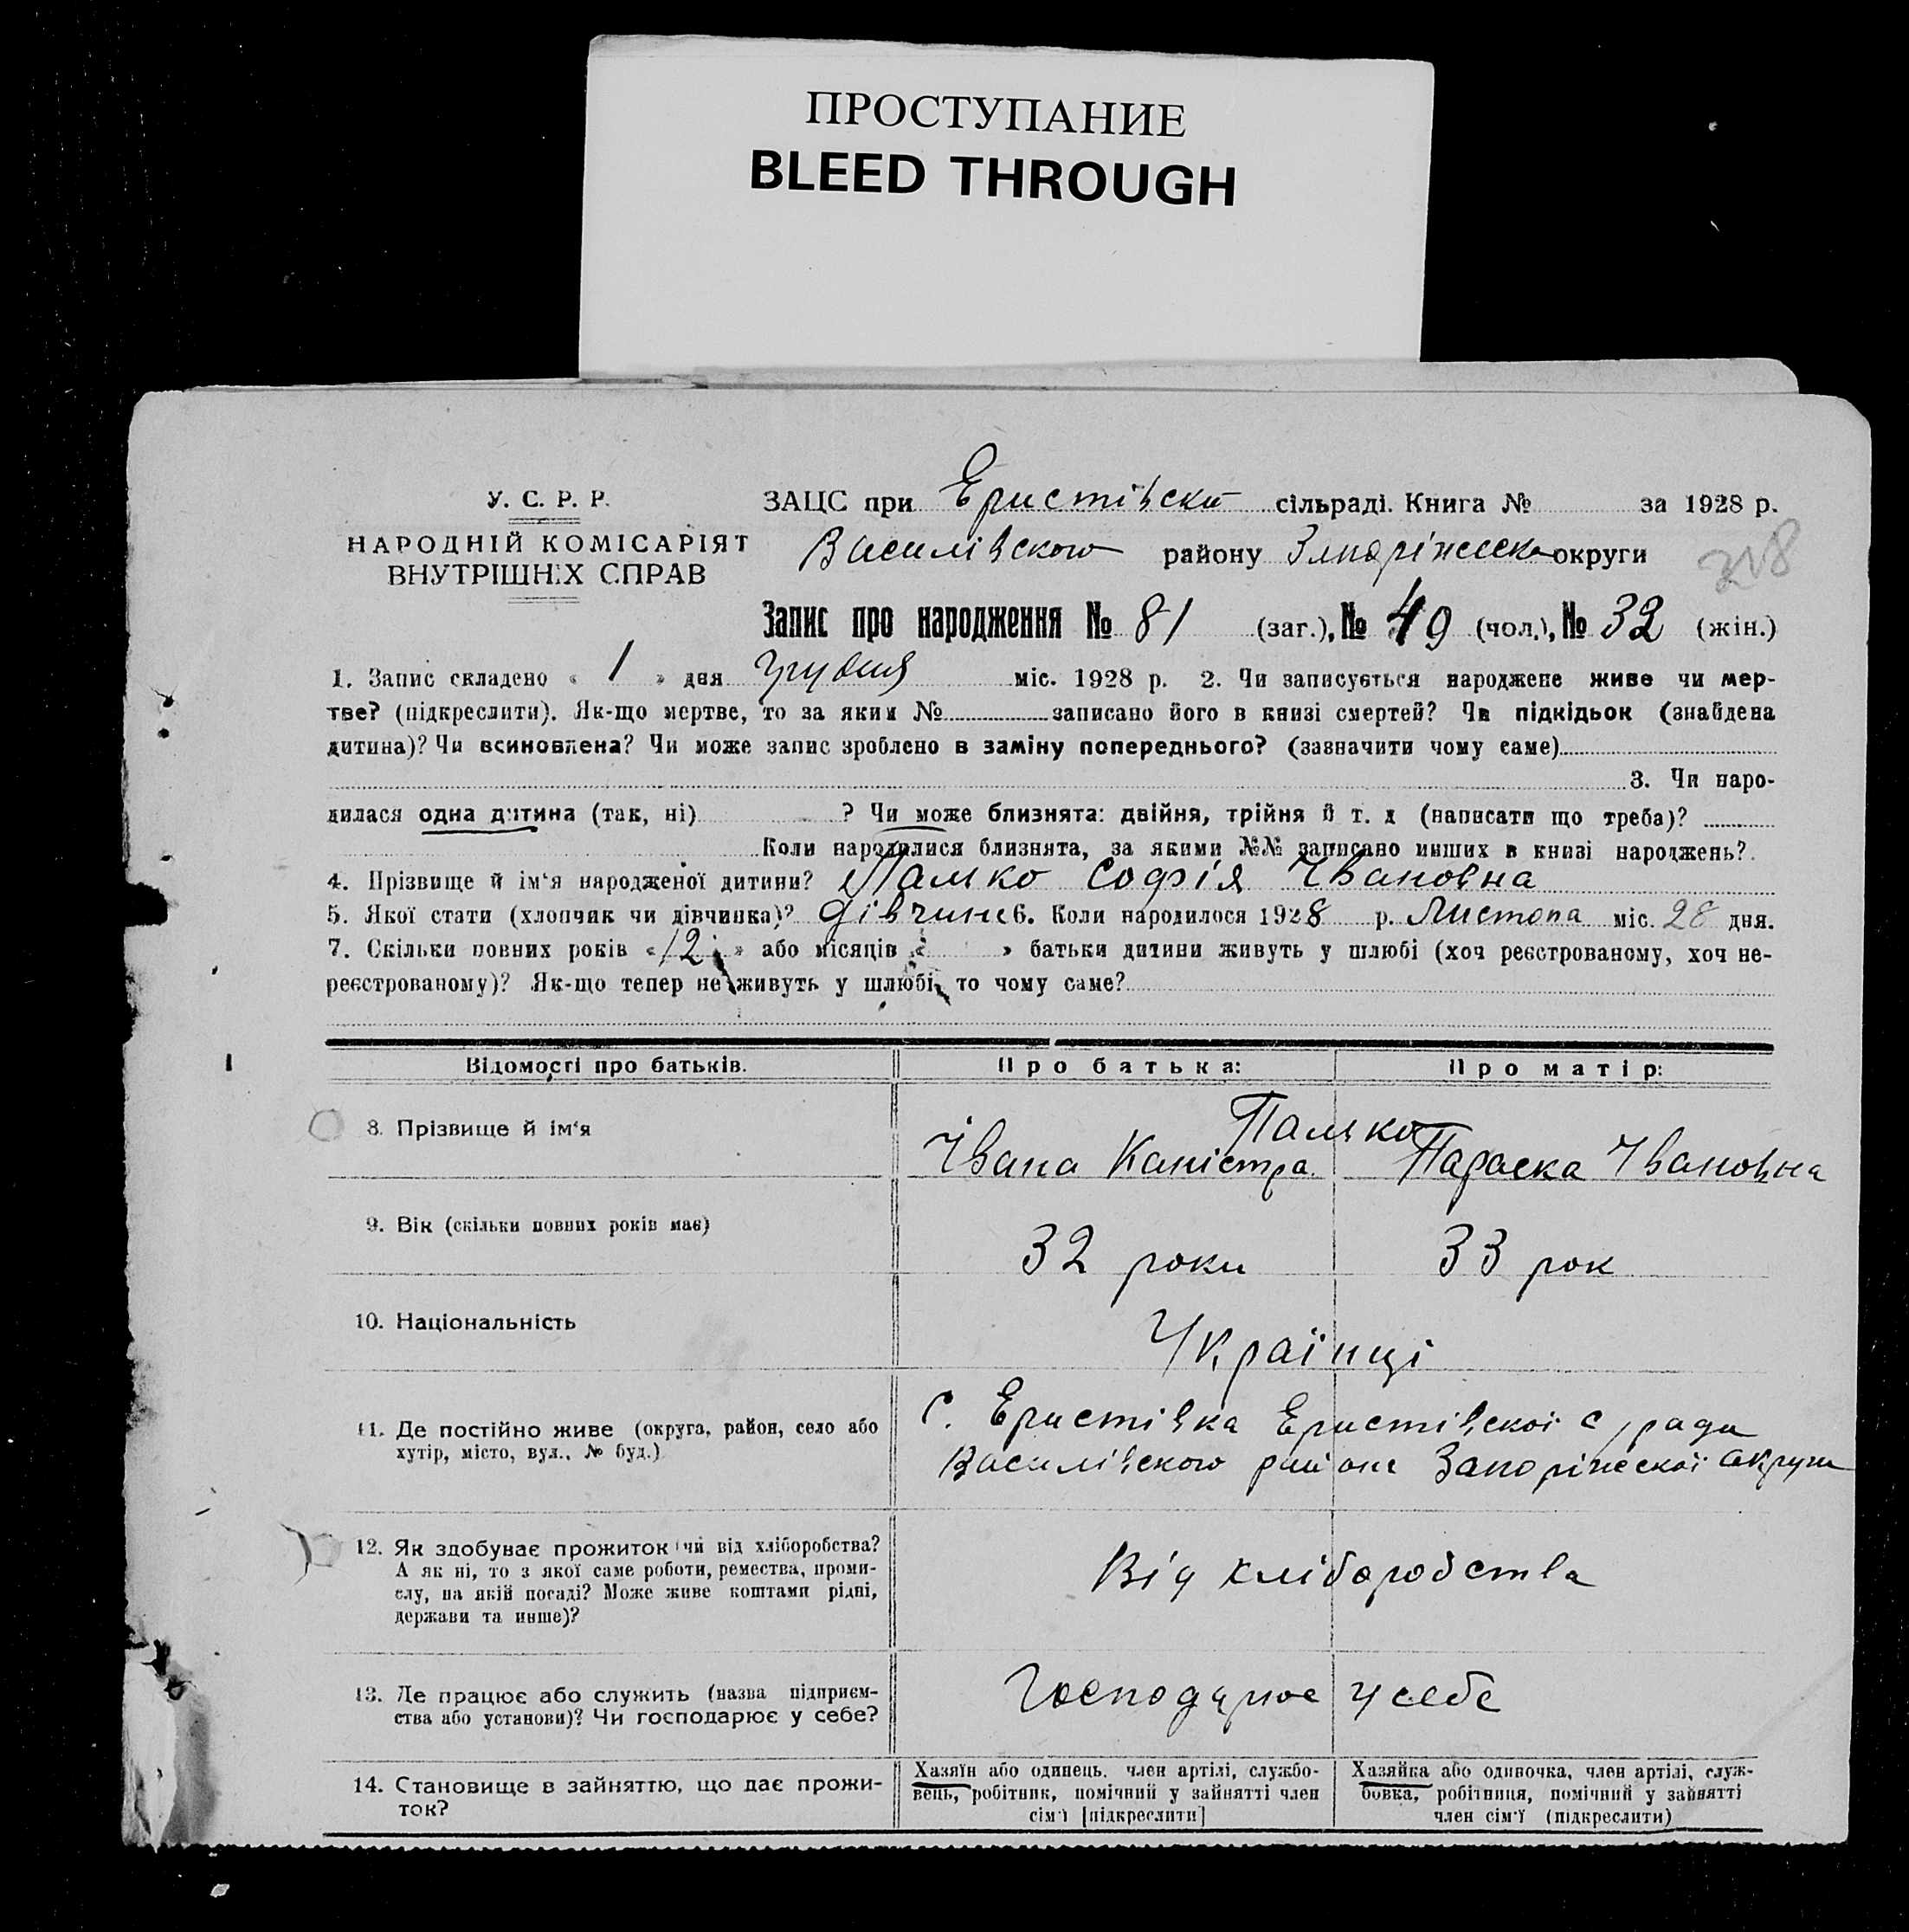 ПРОСТУПАНИЕ
BLEED THROUGH
У. С. Р. Р.
НАРОДНІЙ КОМІСАРІЯТ
ВНУТРІШНІХ СПРАВ
ЗАЦС при Еристівскій сільраді. Книга № за 1928 р.
Василівского району Запоріжск округи
218
Запис про народження № 81 (заг.), № 49 (чол.), № 32 (жін.)
1. Запис складено « 1 » дня Грудня міс. 1928 р. 2. Чи записується народжене живе чи мер-
тве? (підкреслити). Як-що мертве, то за яким № записано його в книзі смертей? Чи підкідьок (знайдена
дитина)? Чи всиновлена? Чи може запис зроблено в заміну попереднього? (зазначити чому саме)
3. Чи наро-
дилася одна дитина (так, ні) ? Чи може близнята: двійня, трійня й т. д (написати що треба)?
Коли народилися близнята, за якими №№ записано инших в книзі народжень?
4. Прізвище й ім'я народженої дитини? Палько Софія Івановна
5. Якої стати (хлопчик чи дівчинка)? дівчине 6. Коли народилося 1928 р. Листопа міс. 28 дня.
7. Скільки повних років « 12 » або місяців « » батьки дитини живуть у шлюбі (хоч реєстрованому, хоч не-
реєстрованому)? Як-що тепер не живуть у шлюбі, то чому саме?
Відомості про батьків. Про батька: Про матір:
Палько
8. Прізвище й ім'я Івана Каністра Параска Івановна
9. Вік (скільки повних років має) 32 роки 33 рок
10. Національність Українці
11. Де постійно живе (округа, район, село або
хутір, місто, вул., № буд.)
С. Еристівка Еристівскої с ради
Василівского района Запоріжскої округи
12. Як здобуває прожиток (чи від хліборобства?
А як ні, то з якої саме роботи, ремества, проми-
слу, на якій посаді? Може живе коштами рідні,
держави та инше)?
Від хліборобства
13. Де працює або служить (назва підприєм-
ства або установи)? Чи господарює у себе?
Господарює у себе
14. Становище в зайняттю, що дає прожи-
ток?
Хазяїн або одинець, член артілі, службо-
вець, робітник, помічний у зайнятті член
сім'ї [підкреслити]
Хазяйка або одиночка, член артілі, служ-
бовка, робітниця, помічний у зайнятті
член сім'ї (підкреслити)